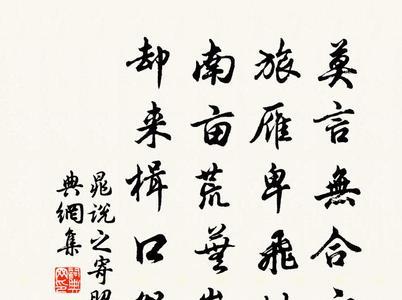 莫言無合
旅雁卑飛
南亩荒蕪
却来楫口
晁説之寄
典網集